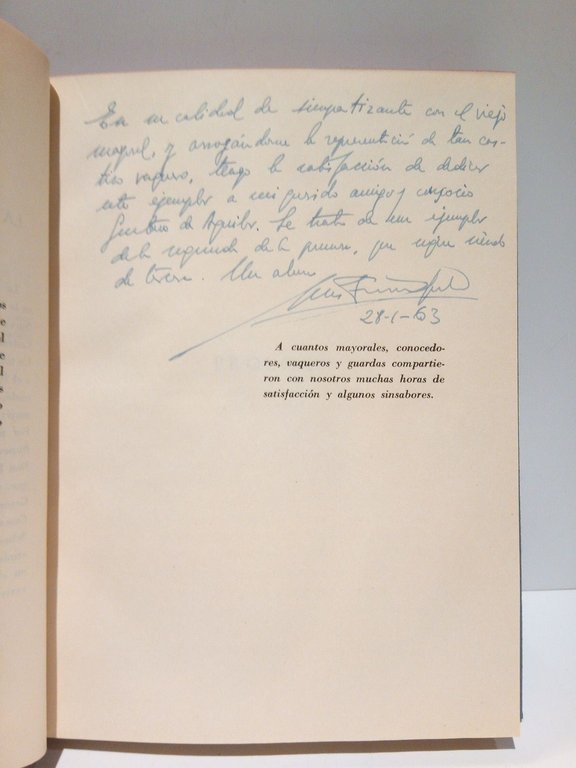 En mi calidad de simpatizante con el viejo
mayoral, y arrogándome la representación de tan cas-
tizo vaquero, tengo la satisfacción de dedicar
este ejemplar a mi querido amigo y consocio
Gustavo de Aguilar. Se trata de un ejemplar
de la segunda de la primera, que sigue siendo
de tercera. Un abrazo
Luis
28-1-63
A cuantos mayorales, conocedo-
res, vaqueros y guardas compartie-
ron con nosotros muchas horas de
satisfacción y algunos sinsabores.